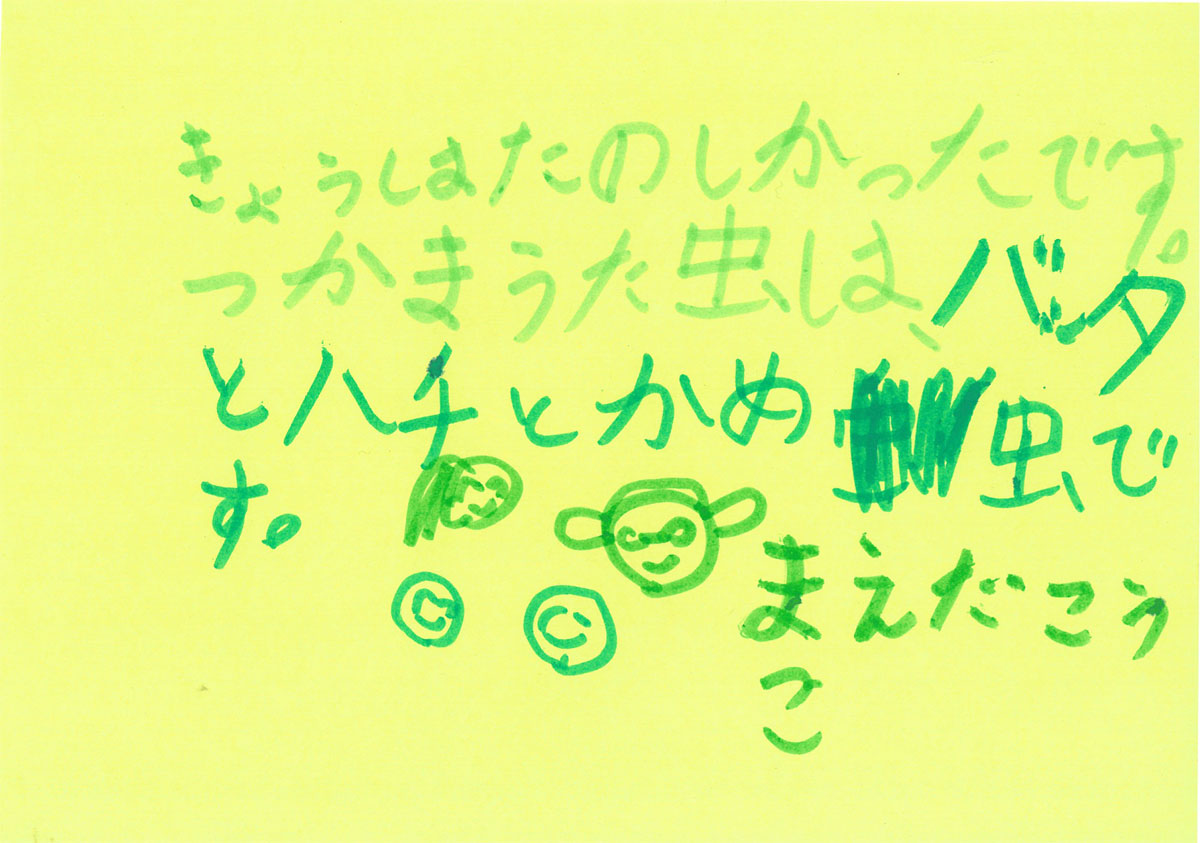 きょうはたのしかったです。
つかまうた虫は、バッタ
とハチとかめ虫で
す。
まえだこう
こ